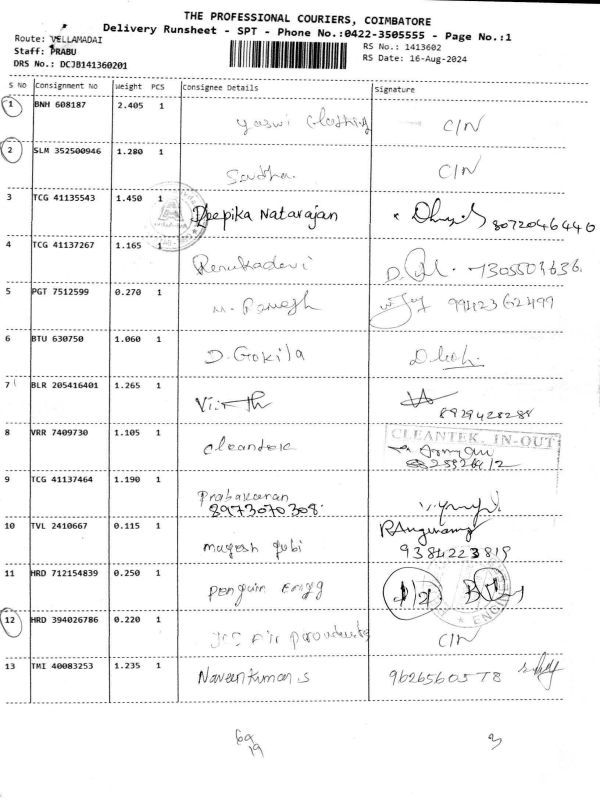 THE PROFESSIONAL COURIERS, COIMBATORE
Delivery Runsheet - SPT - Phone No.:0422-3505555 - Page No.:1
Route: VELLAMADAI
RS No.: 1413602
Staff: PRABU
RS Date: 16-Aug-2024
DRS No.: DCJB141360201
S NO Consignment No Weight PCS Consignee Details Signature
1 BNH 608187 2.405 1 C/N
2 SLM 352500946 1.280 1 C/N
3 TCG 41135543 1.450 1 Deepika Natarajan 8072046440
4 TCG 41137267 1.165 1 Renukadevi
5 PGT 7512599 0.270 1 99423 62499
6 BTU 630750 1.060 1 D. Gokila
7 BLR 205416401 1.265 1
8 VRR 7409730 1.105 1 Cleantek CLEANTEK, IN-OUT
9 TCG 41137464 1.190 1 Prabakaran
8973070308
10 TVL 2410667 0.115 1 magesh gubi
9384223819
11 HRD 712154839 0.250 1 Penguin Engg
12 HRD 394026786 0.220 1 C/N
13 TMI 40083253 1.235 1 Naveen Kumar S 9626560578